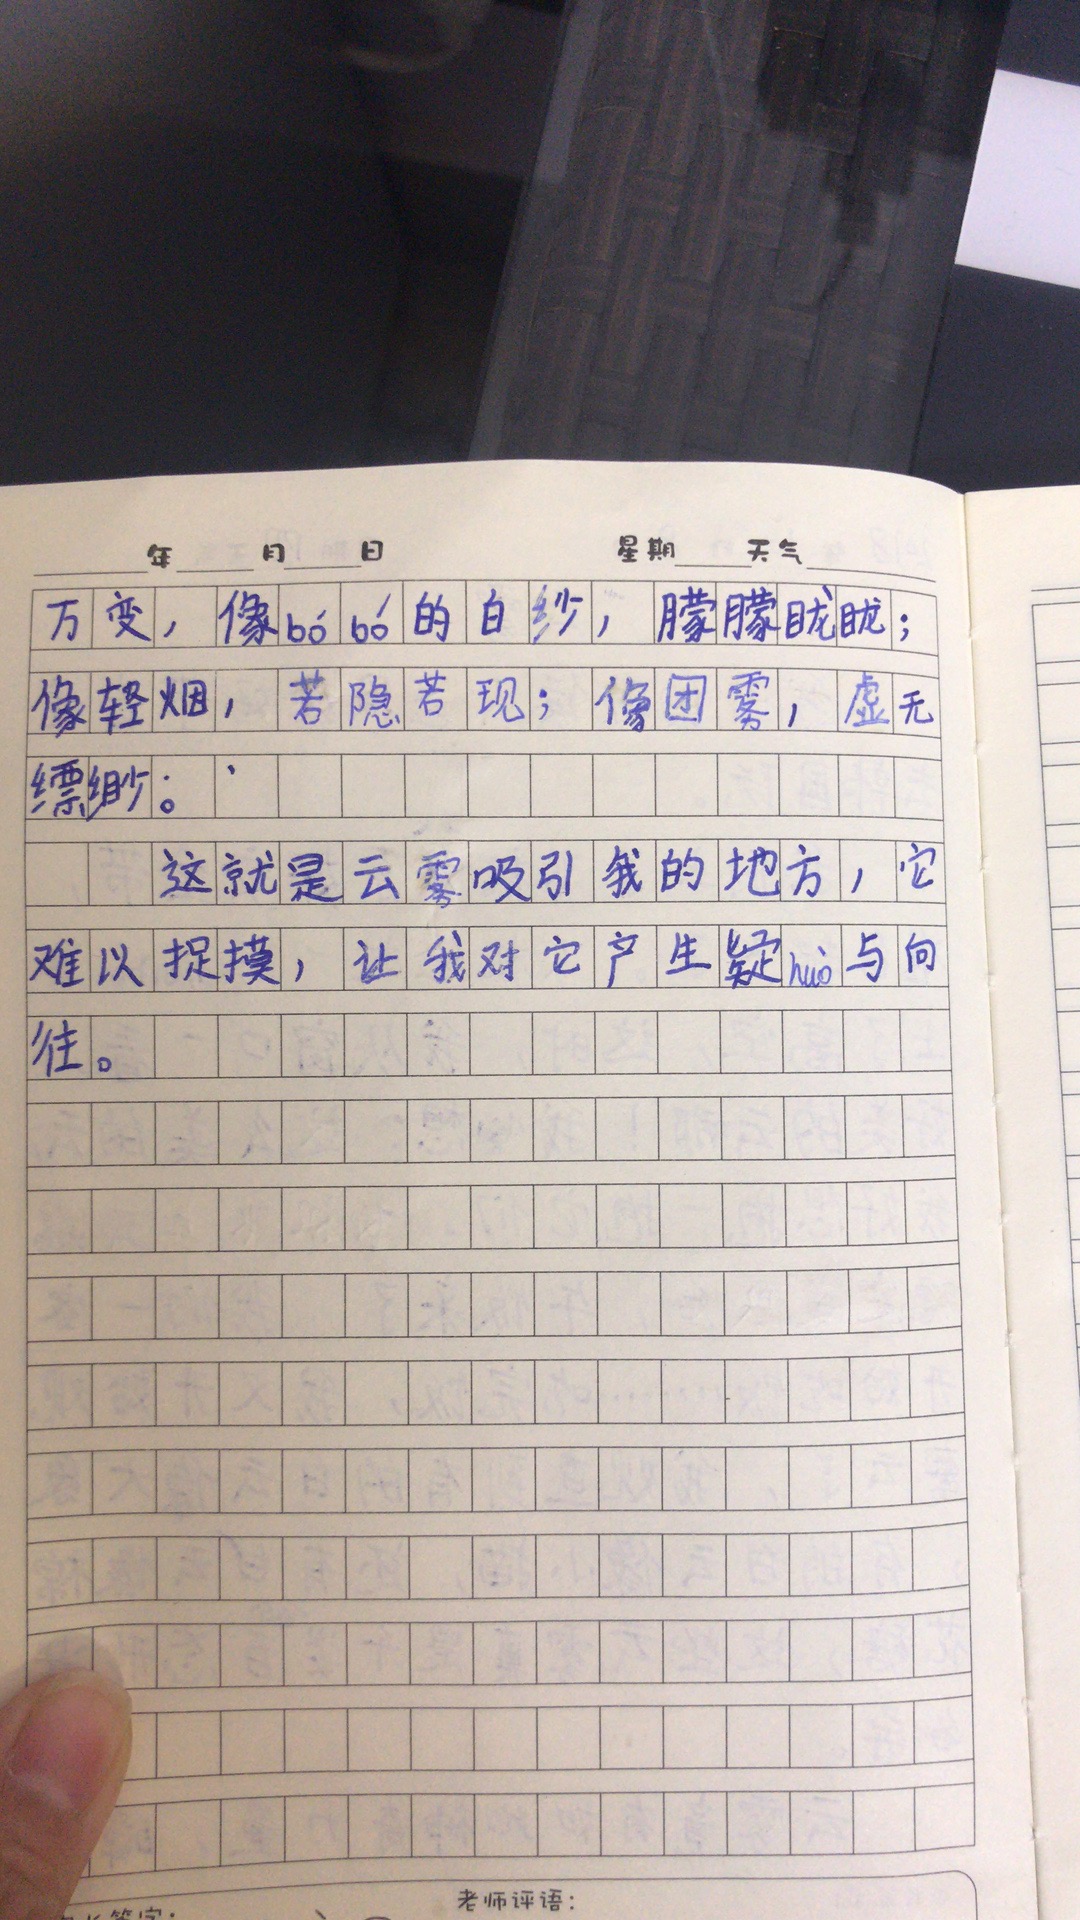 年 月 日 星期 天气
万变，像bóbó的白纱，朦朦眬眬；
像轻烟，若隐若现；像团雾，虚无
缥缈。
这就是云雾吸引我的地方，它
难以捉摸，让我对它产生疑huò与向
往。
老师评语：
签字：